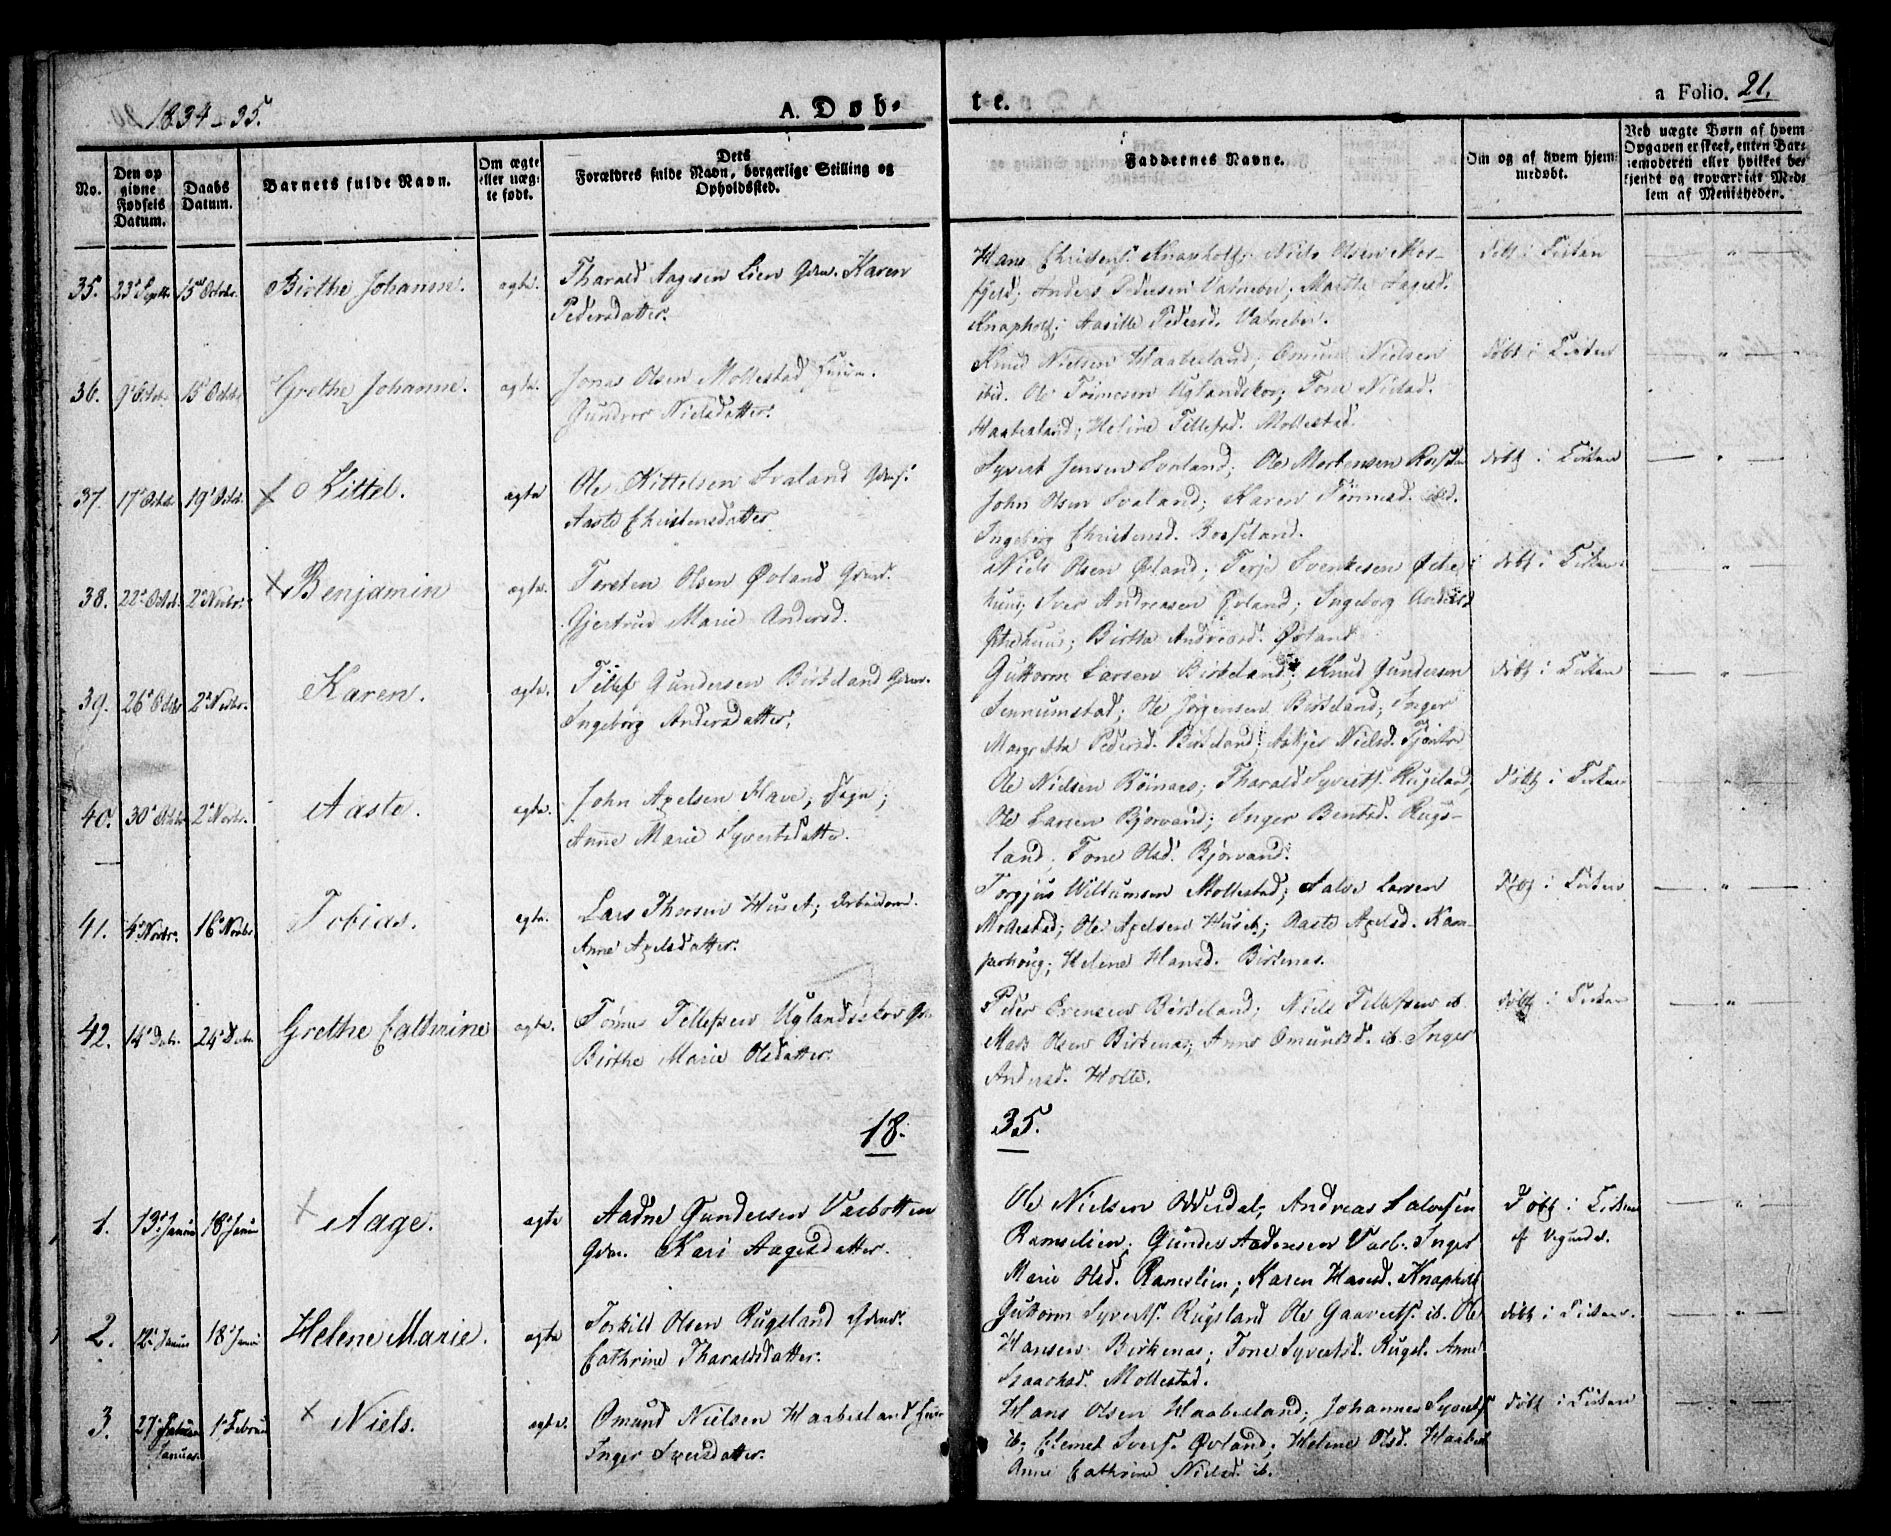 1834-35.
A. Døb-
te.
a Folio. 21.
No.
Den op
givne
Fødsels
Datum.
Daabs
Datum.
Barnets fulde Navn.
Om ægte
eller uæg-
te født.
Dets
Forældres fulde Navn, borgerlige Stilling og
Opholdssted.
Faddernes Navne.
Om og af hvem hjem-
medøbt.
Ved uægte Børn af hvem
Opgaven er skeet, enten Bar-
nemoderen eller hvilket be-
kjendt og troværdigt Med-
lem af Menigheden.
35. 23d Septbr. 15d Octobr. Birthe Johanne. ægte. Tharald Aagesen Lien Gdm. Karen
Pedersdatter.
Hans Christens. Knapholt; Niels Olsen
fjeld; Anders Pedersen Vatnebu; Marthe Aagesd.
Knapholt; Aasille Pedersd. Vatnebu.
Døbt i Kirken
36. 9d Octbr. 15d Octbr Grethe Johanne. ægte. Jonas Olsen Mollestad
Gunvor Nielsdatter.
Knud Nielsen Haabesland; Omund Nielsen
ibid. Ole Tørresen Uglandsker; Tone Nielsd.
Haabesland; Helene Tellefsd. Mollestad.
døbt i Kirken
37. 17d Octbr. 19d Octbr. Kittel. ægte Ole Kittelsen Svaland Gdm.
Aaste Christensdatter.
Syvert Jensen Svaland; Ole Mortensen
John Olsen Svaland; Karen Tørresd. ibd.
Ingeborg Christensd. Bosseland.
døbt i Kirken
38. 22d Octbr. 2d Novbr. Benjamin ægte. Tersten Olsen Øvland Gdmd.
Gjertrud Marie Andersd.
Niels Olsen Øvland; Terje Svenkesen Østre
huus; Iver Andreasen Øvland; Ingeborg Andersd
Østrehuus; Birthe Andreasd. Øvland.
døbt i Kirken.
39. 26d Octbr 2d Novbr. Karen. ægte. Tellef Gundersen Birkeland Gdm.
Ingeborg Andersdatter.
Guttorm Larsen Birkeland; Knud Gundersen
Sennumstad; Ole Jørgensen Birkeland; Inger
Margrethe Pedersd. Birkeland; Nielsd.
døbt i Kirken
40. 30d Octbr 2d Novbr. Aaste. ægte. John Axelsen Have;
Anne Marie Syvertsdatter.
Ole Nielsen Tharald Syverts. Rugsland,
Ole Larsen Bjorvand; Inger Bentsd. Rugs-
land. Tone Olsd. Bjorvand.
døbt i Kirken
41. 4d Novbr. 16d Novbr. Tobias. ægte. Lars Thorsen Huset; Arbeidsmd.
Anne Axelsdatter.
Torgjus Willumsen Mollestad; Salve Larsen
Mollestad; Ole Axelsen Huset; Aaste Axelsd. Kam-
perhoug; Helene Hansd. Birkenas.
døbt i Kirken
42. 14d Decbr. 24d Decbr. Grethe Cathrine ægte. Tørres Tellefsen Uglandsker Gdm
Birthe Marie Olsdatter.
Peder Evensen Birkeland; Niels Tellefsen ib.
Mads Olsen Birkenas; Anne Omundsd. ib. Inger
Andersd. Holte.
døbt i Kirken
18. 35.
1. 13d Januar 18d Januar Aage. ægte Aadne Gundersen Vasbotten
Gdm. Kari Aagesdatter.
Ole Nielsen Andreas Salvesen
Ramselien; Gunder Aadnesen Vasb. Inger
Marie Olsd. Ramslien; Karen Hansd. Knapholt
Døbt i Kirken
af Vegusdal.
2. 12d Januar 18d Januar Helene Marie. ægte Torkild Olsen Rugsland Gdmd.
Cathrine Tharaldsdatter.
Guttorm Syverts. Rugsland Ole Gaverts. ib. Ole
Hansen Birkenas; Tone Syvertsd. Rugsl. Anne
Isaachsd. Mollestad.
døbt i Kirken.
3. 27d
Januar. 1d Februar Niels. ægte. Omund Nielsen Haabesland
Inger Iversdatter.
Hans Olsen Haabesland; Johannes Syverts.
ib; Clemet Ivers. Øvland; Helene Olsd. Haabesl.
Anne Cathrine Nielsd. ib.
døbt i Kirken